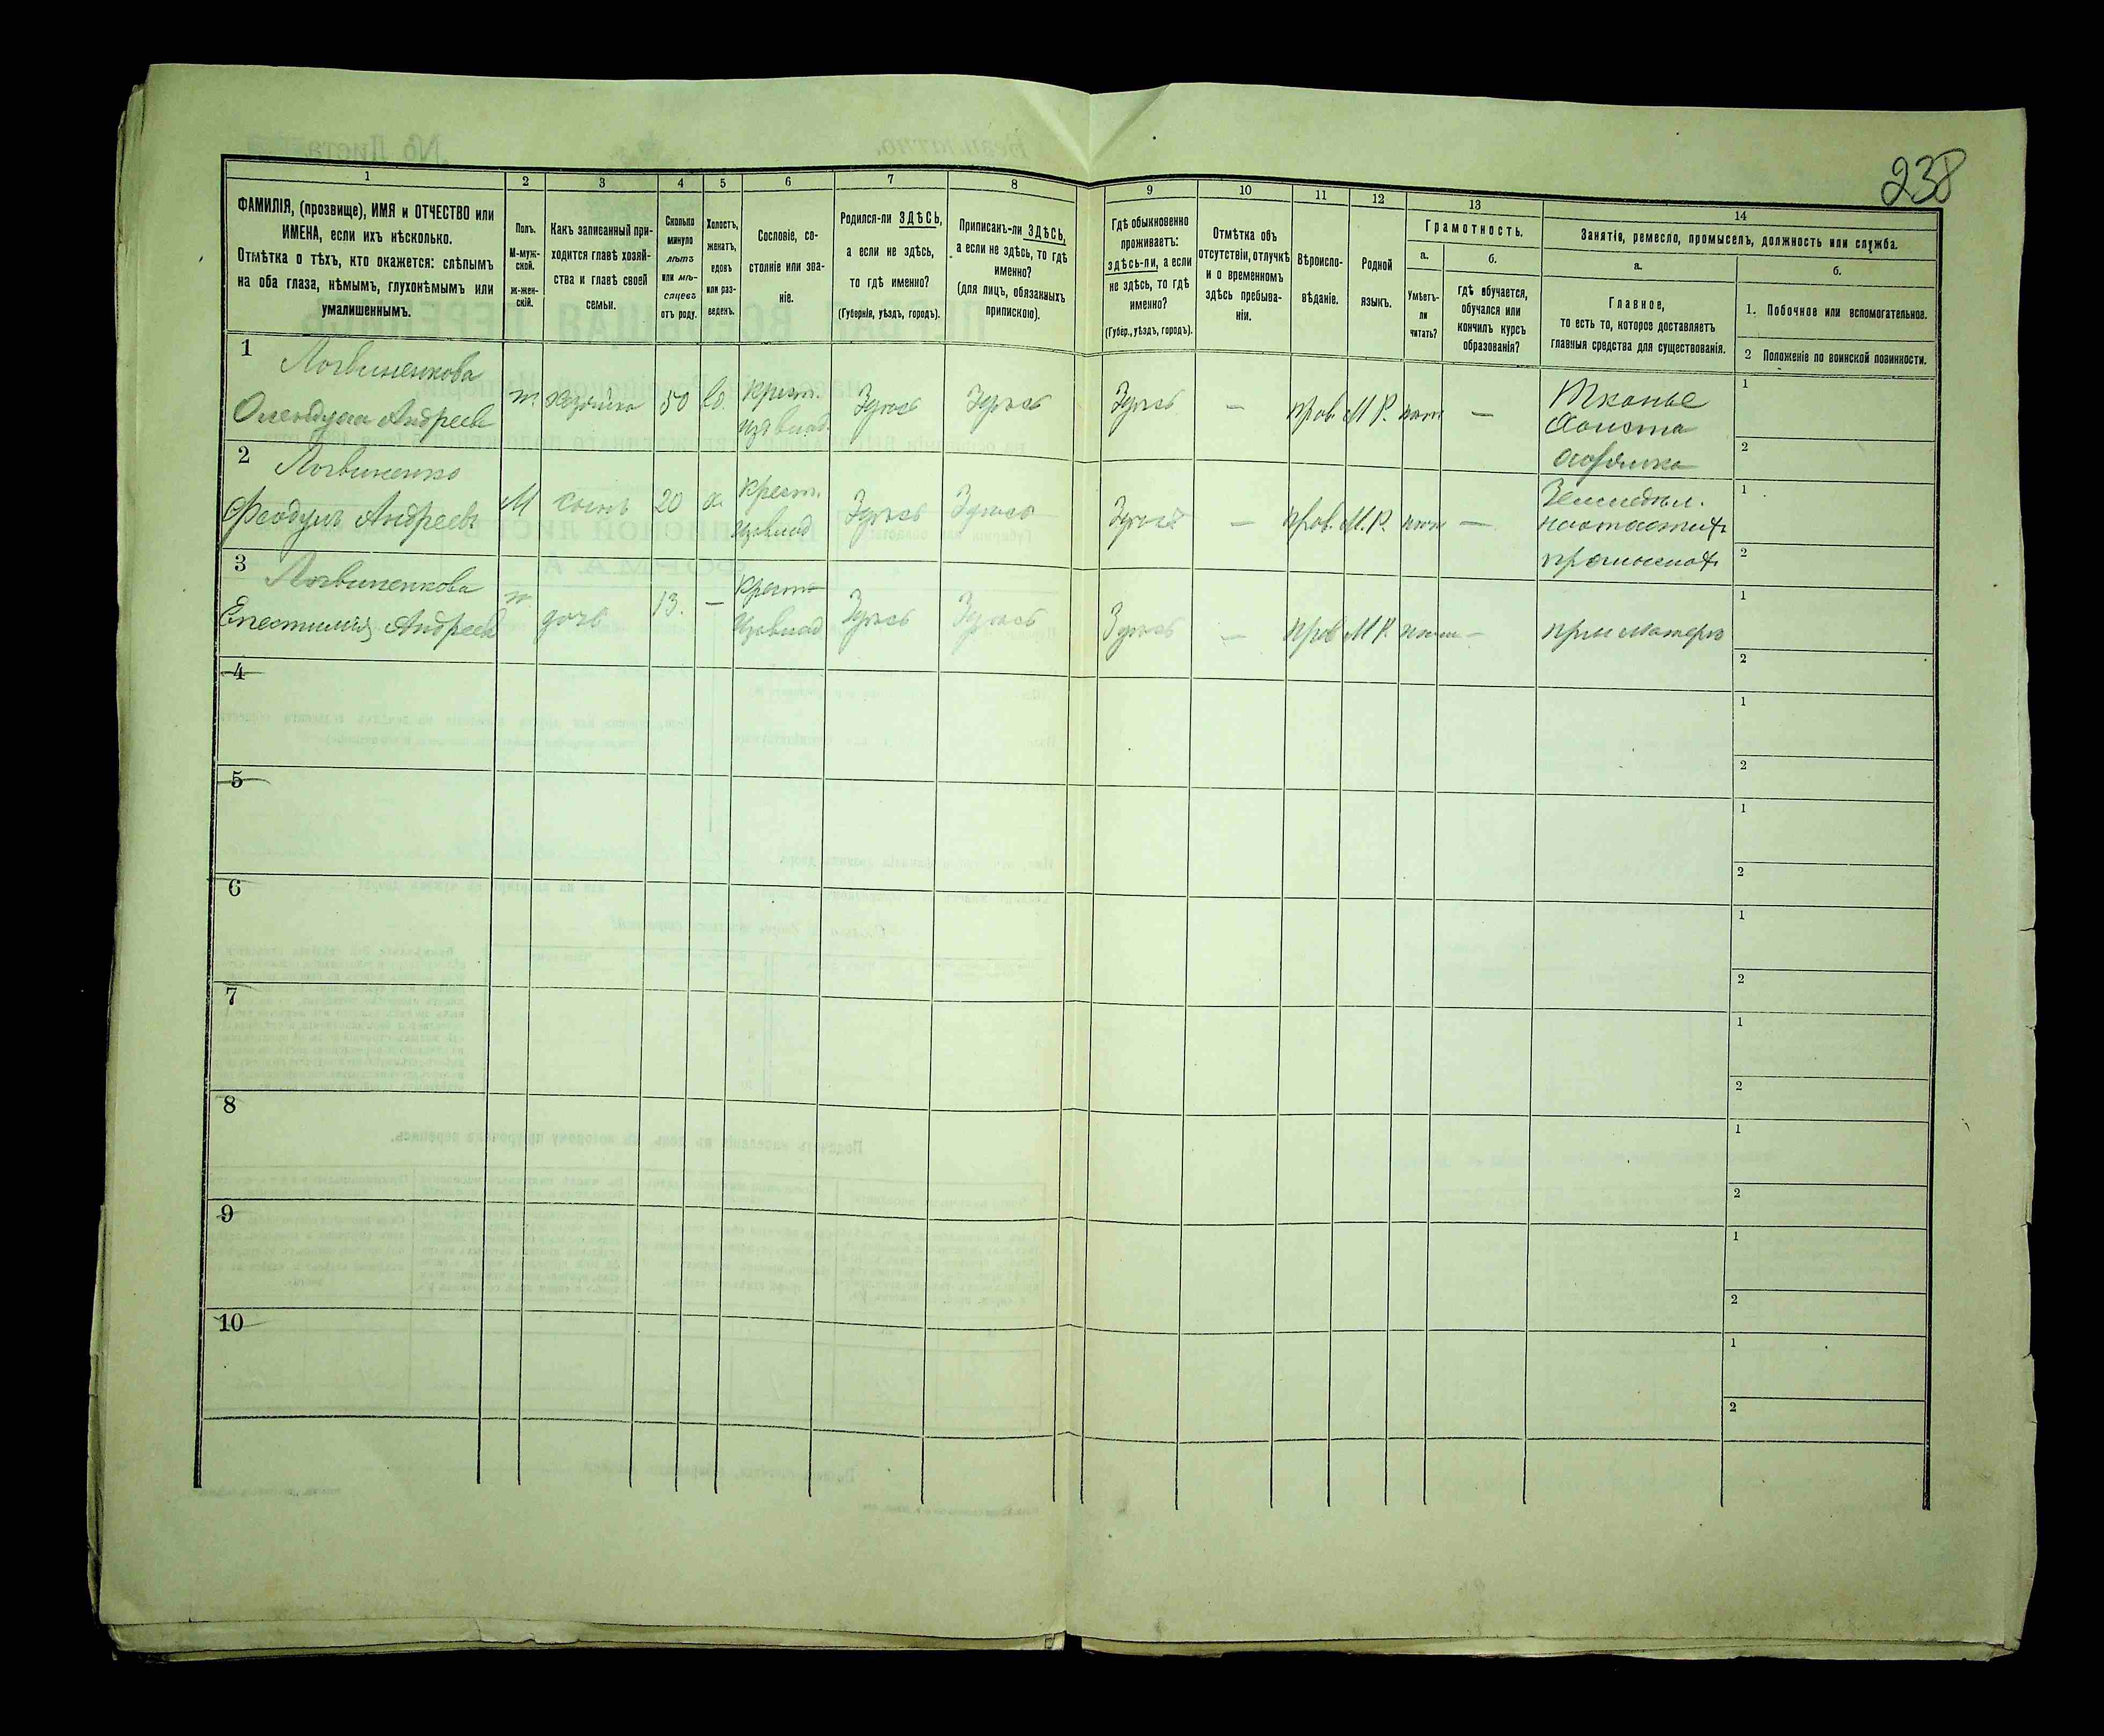 238
1 2 3 4 5 6 7 8 9 10 11 12 13 14
ФАМИЛІЯ, (прозвище), ИМЯ и ОТЧЕСТВО или
ИМЕНА, если ихъ нѣсколько.
Отмѣтка о тѣхъ, кто окажется: слѣпымъ
на оба глаза, нѣмымъ, глухонѣмымъ или
умалишеннымъ.
Полъ.
М-муж-
ской.
ж-жен-
скій.
Какъ записанный при-
ходится главѣ хозяй-
ства и главѣ своей
семьи.
Сколько
минуло
лѣтъ
или мѣ-
сяцевъ
отъ роду.
Холостъ,
женатъ,
вдовъ
или раз-
веденъ.
Сословіе, со-
стояніе или зва-
ніе.
Родился-ли ЗДѢСЬ,
а если не здѣсь,
то гдѣ именно?
(Губернія, уѣздъ, городъ).
Приписанъ-ли ЗДѢСЬ,
а если не здѣсь, то гдѣ
именно?
(для лицъ, обязанныхъ
припискою).
Гдѣ обыкновенно
проживаетъ:
здѣсь-ли, а если
не здѣсь, то гдѣ
именно?
(Губер., уѣздъ, городъ).
Отмѣтка объ
отсутствіи, отлучкѣ
и о временномъ
здѣсь пребыва-
ніи.
Вѣроиспо-
вѣданіе.
Родной
языкъ.
Грамотность.
а.
Умѣетъ-
ли
читать?
б.
гдѣ обучается,
обучался или
кончилъ курсъ
образованія?
Занятіе, ремесло, промыселъ, должность или служба.
а.
Главное,
то есть то, которое доставляетъ
главныя средства для существованія.
б.
1. Побочное или вспомогательное.
2 Положеніе по воинской повинности.
1 Логвиненкова
Андреев ж. хозяйка 50 вд. крест. Здѣсь Здѣсь Здѣсь — прав. М.Р. нѣт —
из влад.
Тканье
холста
1
2
2 Логвиненко
Феодулъ Андреевъ М сынъ 20 х. крест. Здѣсь Здѣсь Здѣсь — прав. М.Р. нѣт —
из влад
Земледѣл.
1
2
3 Логвиненкова
Епестимія Андреев ж. дочь 13. — крест Здѣсь Здѣсь Здѣсь — прав М Р. нѣт — при матери
из влад
1
2
4
1
2
5
1
2
6
1
2
7
1
2
8
1
2
9
1
2
10
1
2